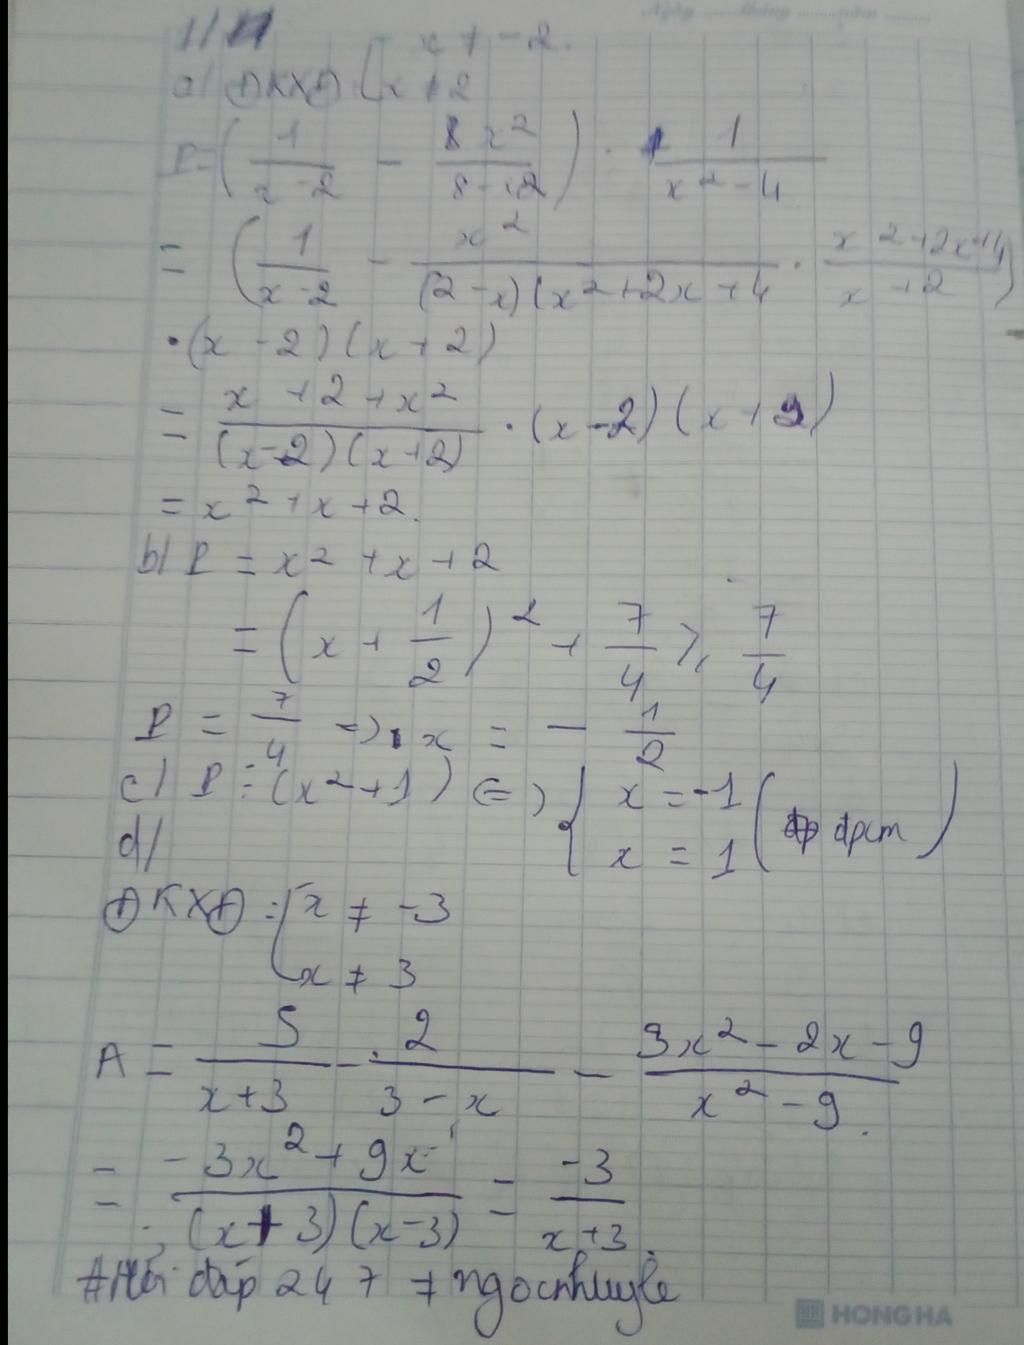 Ngày ...... tháng ...... năm ......
1/
a/ ĐKXĐ { x ≠ -2. x ≠ 2
P = (1/(x-2) - x²/(8-x³)) · 1/(x²-4)
= (1/(x-2) - x²/((2-x)(x²+2x+4) · (x²+2x+4)/(x+2))
·(x-2)(x+2)
= (x+2+x²)/((x-2)(x+2)) · (x-2)(x+2)
= x²+x+2.
b/ P = x²+x+2
= (x + 1/2)² + 7/4 ≥ 7/4
P = 7/4 => x = - 1/2
c/ P ⋮ (x²+1) <=> { x = -1 x = 1 (đpcm)
d/
ĐKXĐ: { x ≠ -3 x ≠ 3
A = 5/(x+3) - 2/(3-x) - (3x²-2x-9)/(x²-9)
= (-3x²+9x)/((x+3)(x-3)) = -3/(x+3)
#Hỏi đáp 247
HONG HA